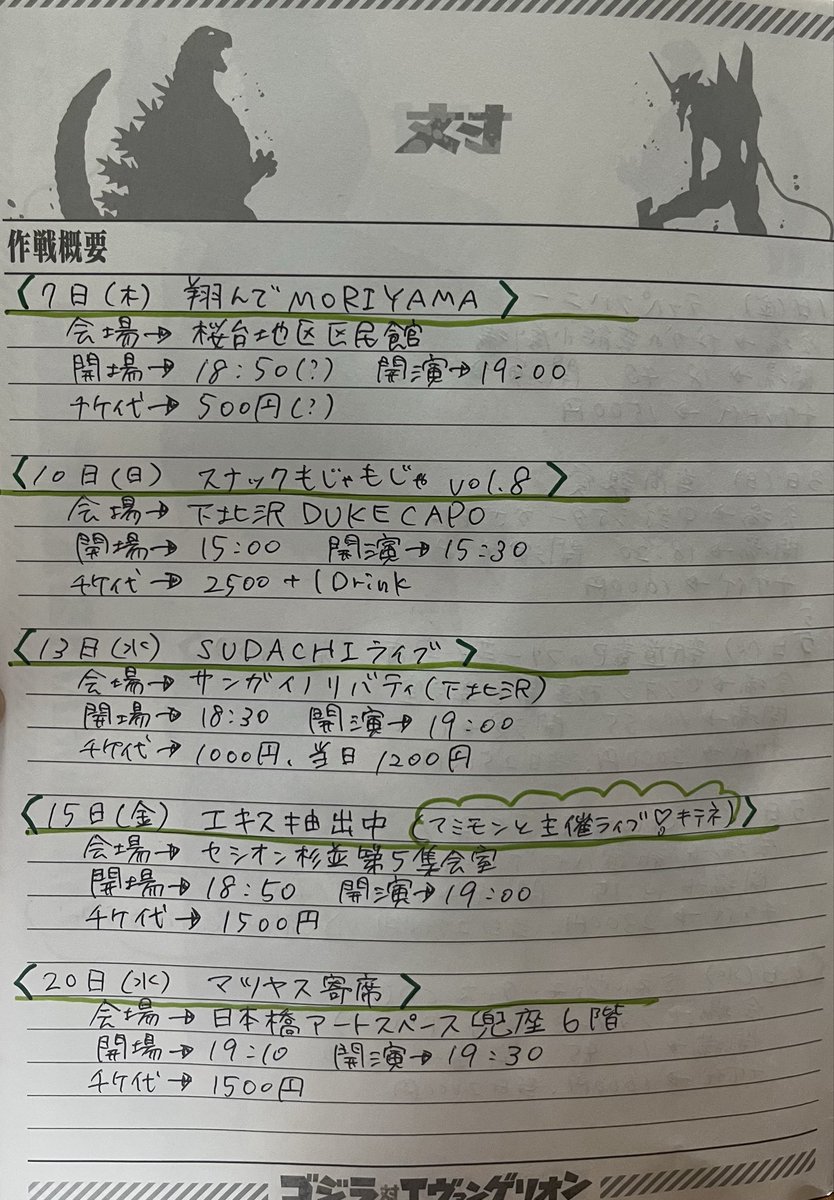 対
作戦概要
〈7日(木) 翔んでMORIYAMA〉
会場→ 桜台地区区民館
開場→ 18:50(?) 開演→19:00
チケ代→ 500円(?)
〈10日(日) スナックもじゃもじゃ vol.8〉
会場→ 下北沢 DUKE CAPO
開場→ 15:00 開演→15:30
チケ代→ 2500+1Drink
〈13日(水) SUDACHIライブ〉
会場→ サンガイノリバティ(下北沢)
開場→ 18:30 開演→19:00
チケ代→ 1000円、当日 1200円
〈15日(金) エキス抽出中 (マミモンと主催ライブ♡キテネ)〉
会場→ セシオン杉並第5集会室
開場→ 18:50 開演→19:00
チケ代→ 1500円
〈20日(水) マツヤス寄席〉
会場→ 日本橋アートスペース兜座 6階
開場→ 19:10 開演→19:30
チケ代→ 1500円
ゴジラ対エヴァンゲリオン